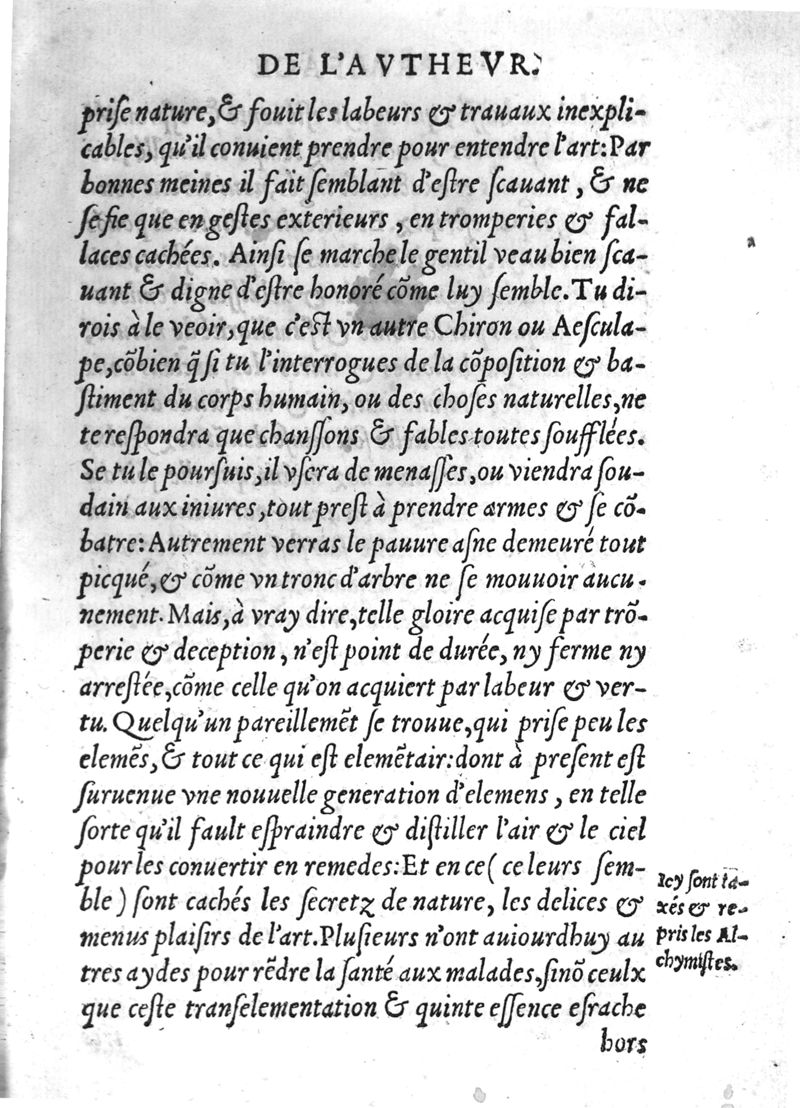 DE L'AVTHEVR.
priſe nature, & fouit les labeurs & trauaux inexpli-
cables, qu'il conuient prendre pour entendre l'art: Par
bonnes meines il fait ſemblant d'eſtre ſcauant, & ne
ſe fie que en geſtes exterieurs, en tromperies & fal-
laces cachées. Ainſi ſe marche le gentil veau bien ſca-
uant & digne d'eſtre honoré cõme luy ſemble. Tu di-
rois à le veoir, que c'eſt vn autre Chiron ou Aeſcula-
pe, cõbien q̃ ſi tu l'interrogues de la cõpoſition & ba-
ſtiment du corps humain, ou des choſes naturelles, ne
te reſpondra que chanſſons & fables toutes ſoufflées.
Se tu le pourſuis, il vſera de menaſſes, ou viendra ſou-
dain aux iniures, tout preſt à prendre armes & ſe cõ-
batre: Autrement verras le pauure aſne demeuré tout
picqué, & cõme vn tronc d'arbre ne ſe mouuoir aucu-
nement. Mais, à vray dire, telle gloire acquiſe par trõ-
perie & deception, n'eſt point de durée, ny ferme ny
arreſtée, cõme celle qu'on acquiert par labeur & ver-
tu. Quelqu'un pareillemẽt ſe trouue, qui priſe peu les
elemẽs, & tout ce qui eſt elemẽtair: dont à preſent eſt
ſuruenue vne nouuelle generation d'elemens, en telle
ſorte qu'il fault eſpraindre & diſtiller l'air & le ciel
pour les conuertir en remedes: Et en ce ( ce leurs ſem-
ble ) ſont cachés les ſecretz de nature, les delices &
menus plaiſirs de l'art. Pluſieurs n'ont auiourdhuy au
tres aydes pour rẽdre la ſanté aux malades, ſinõ ceulx
que ceſte tranſelementation & quinte eſſence eſrache
hors
Icy ſont ta-
xés & re-
pris les Al-
chymiſtes.